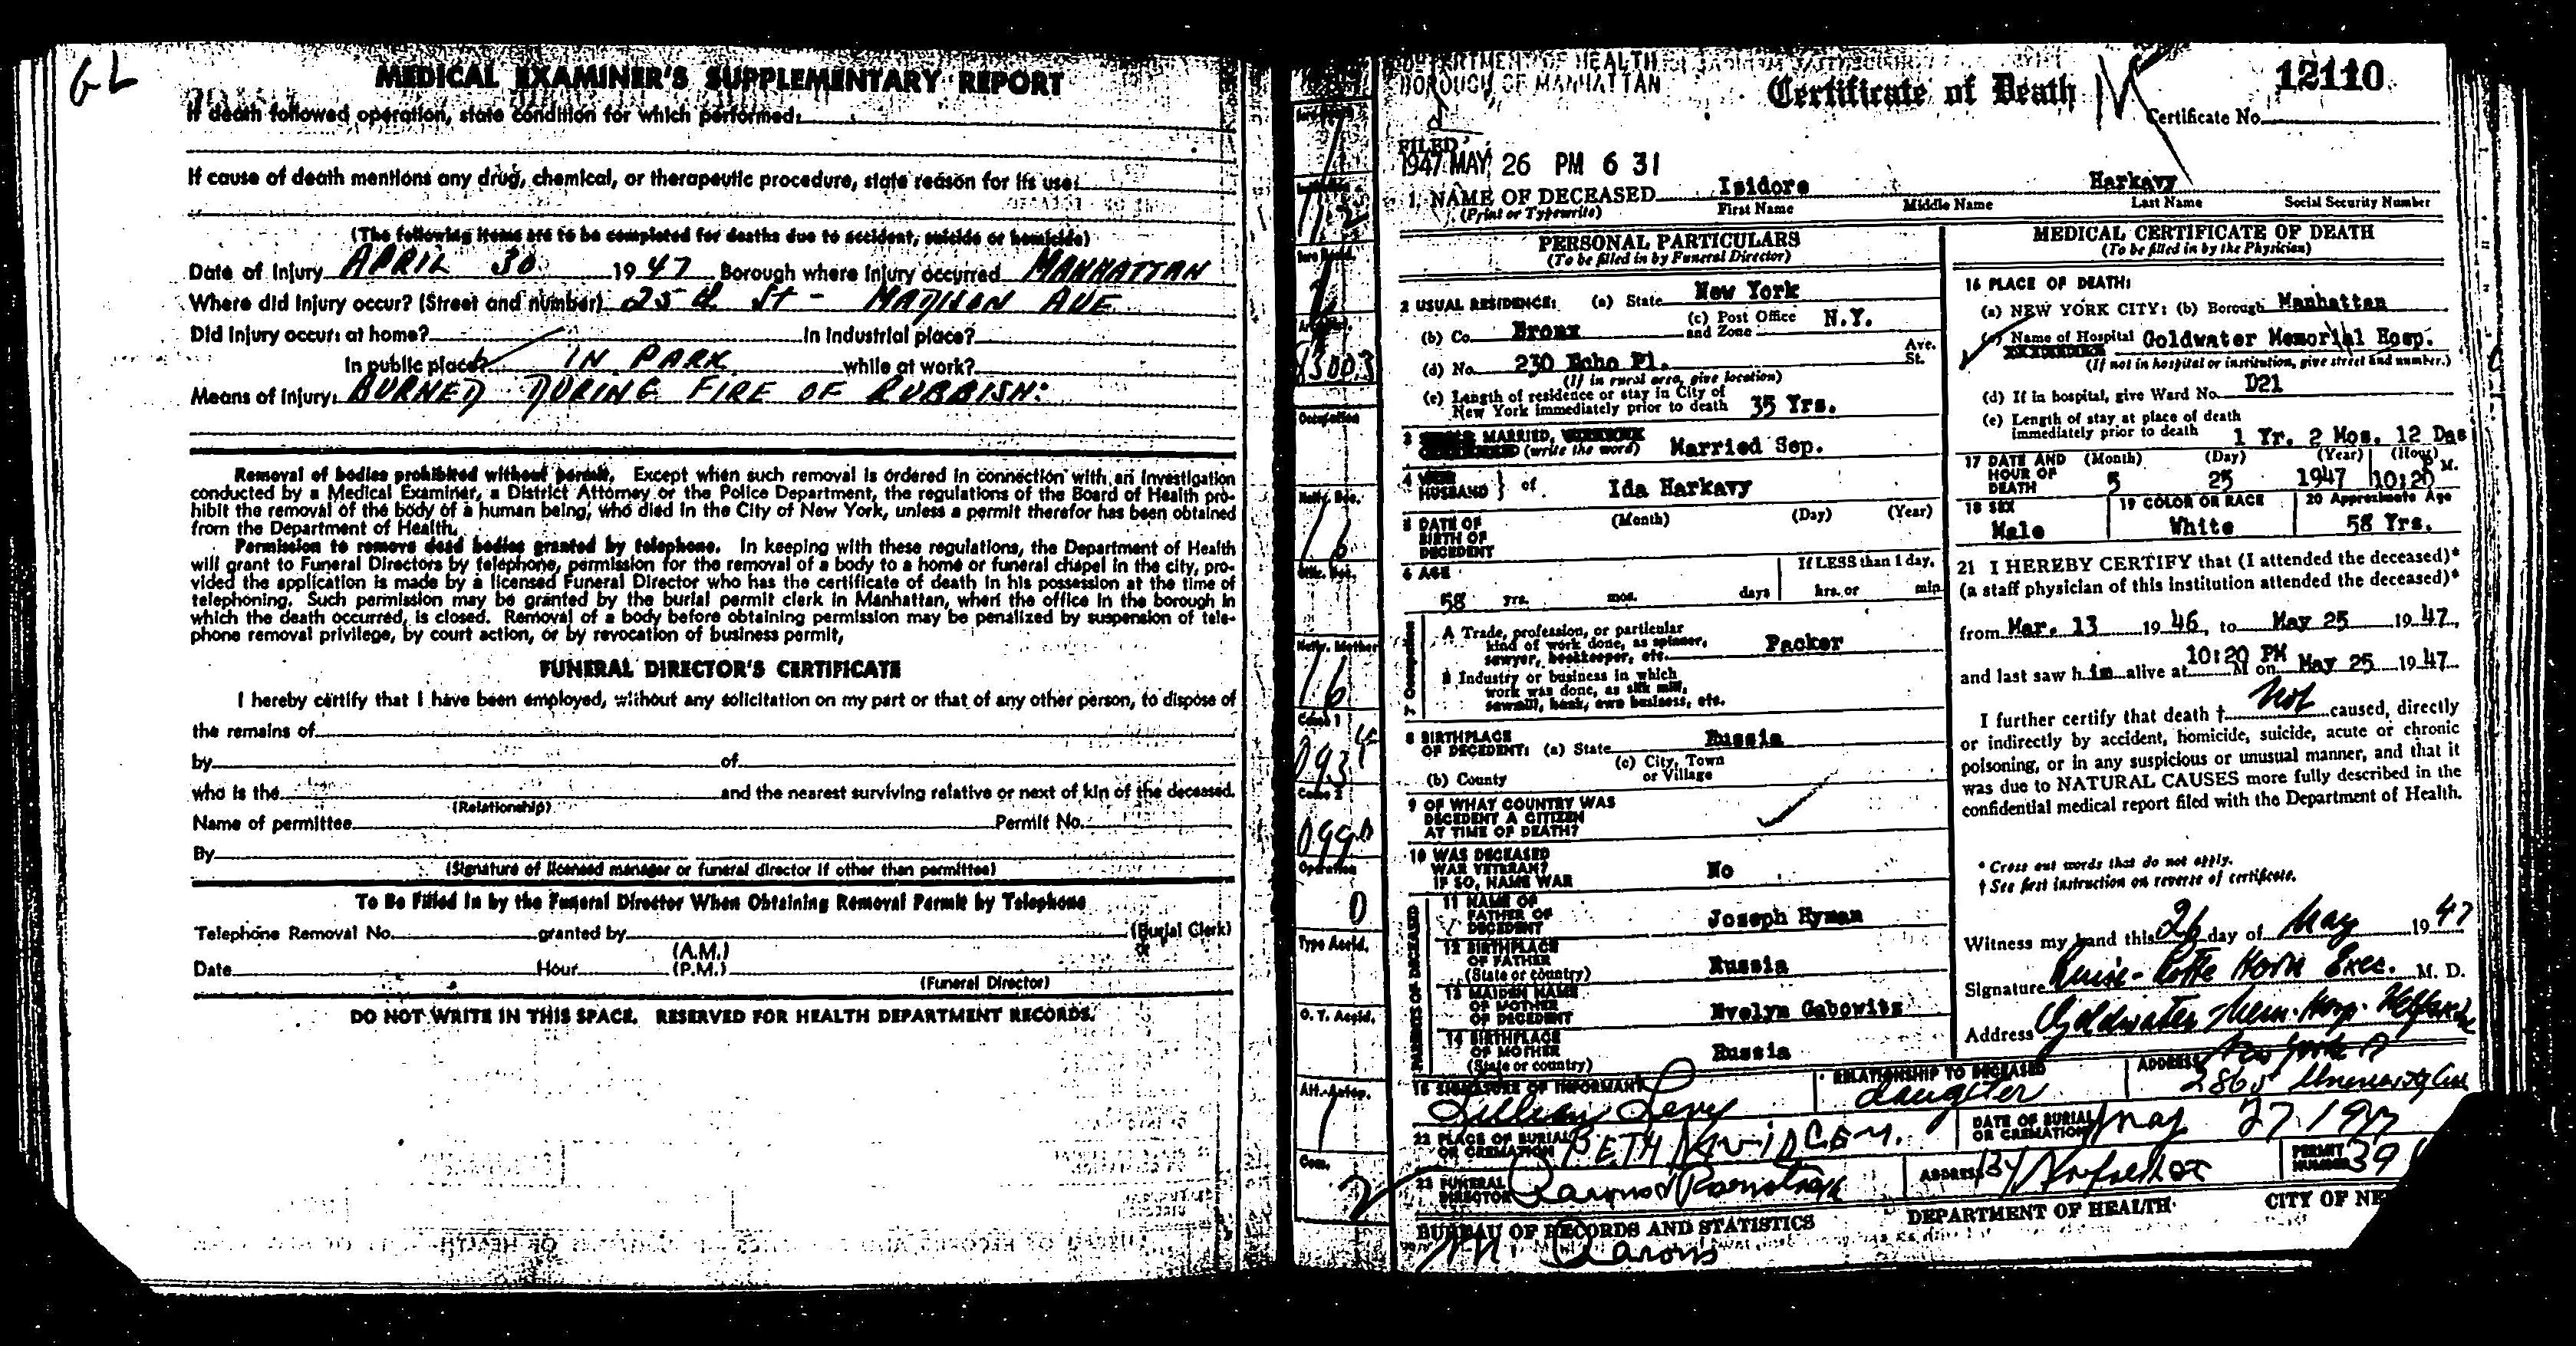 GL
MEDICAL EXAMINER'S SUPPLEMENTARY REPORT
If death followed operation, state condition for which performed:
If cause of death mentions any drug, chemical, or therapeutic procedure, state reason for its use:
(The following items are to be completed for deaths due to accident, suicide or homicide)
Date of Injury APRIL 30 1947 Borough where Injury occurred MANHATTAN
Where did Injury occur? (Street and number) 25 d St - MADISON AVE
Did Injury occur: at home? In industrial place?
In public place? IN PARK while at work?
Means of Injury: BURNED DURING FIRE OF RUBBISH:
Removal of bodies prohibited without permit. Except when such removal is ordered in connection with an investigation
conducted by a Medical Examiner, a District Attorney or the Police Department, the regulations of the Board of Health pro-
hibit the removal of the body of a human being, who died in the City of New York, unless a permit therefor has been obtained
from the Department of Health.
Permission to remove dead bodies granted by telephone. In keeping with these regulations, the Department of Health
will grant to Funeral Directors by telephone, permission for the removal of a body to a home or funeral chapel in the city, pro-
vided the application is made by a licensed Funeral Director who has the certificate of death in his possession at the time of
telephoning. Such permission may be granted by the burial permit clerk in Manhattan, when the office in the borough in
which the death occurred, is closed. Removal of a body before obtaining permission may be penalized by suspension of tele-
phone removal privilege, by court action, or by revocation of business permit,
FUNERAL DIRECTOR'S CERTIFICATE
I hereby certify that I have been employed, without any solicitation on my part or that of any other person, to dispose of
the remains of
by of
who is the and the nearest surviving relative or next of kin of the deceased.
(Relationship)
Name of permittee Permit No.
By
(Signature of licensed manager or funeral director if other than permittee)
To Be Filled In by the Funeral Director When Obtaining Removal Permit by Telephone
Telephone Removal No. granted by (Burial Clerk)
(A.M.)
Date Hour (P.M.)
(Funeral Director)
DO NOT WRITE IN THIS SPACE. RESERVED FOR HEALTH DEPARTMENT RECORDS.
Occupation
Nativ. Dec.
16
Nativ. Mother
16
Cause 1
093
Cause 2
0990
Operation
0
Type Accid.
O. T. Accid.
Att.-Autop.
1
Com.
2
DEPARTMENT OF HEALTH
BOROUGH OF MANHATTAN
Certificate of Death
12110
Certificate No.
FILED
1947 MAY 26 PM 6 31
1. NAME OF DECEASED Isidore Harkavy
(Print or Typewrite) First Name Middle Name Last Name Social Security Number
PERSONAL PARTICULARS
(To be filled in by Funeral Director)
2 USUAL RESIDENCE: (a) State New York
(b) Co. Bronx (c) Post Office and Zone N.Y.
(d) No. 230 Echo Pl. Ave. St.
(If in rural area, give location)
(e) Length of residence or stay in City of
New York immediately prior to death 35 Yrs.
3 MARRIED,
(write the word) Married Sep.
4 HUSBAND } of Ida Harkavy
5 DATE OF BIRTH OF DECEDENT (Month) (Day) (Year)
6 AGE If LESS than 1 day,
58 yrs. mos. days hrs. or min.
7 Occupation
A Trade, profession, or particular
kind of work done, as spinner,
sawyer, bookkeeper, etc. Packer
B Industry or business in which
work was done, as silk mill,
sawmill, bank, own business, etc.
8 BIRTHPLACE
OF DECEDENT: (a) State Russia
(b) County (c) City, Town or Village
9 OF WHAT COUNTRY WAS
DECEDENT A CITIZEN
AT TIME OF DEATH?
10 WAS DECEASED
WAR VETERAN?
IF SO, NAME WAR No
PARENTS OF DECEASED
11 NAME OF
FATHER OF
DECEDENT Joseph Hyman
12 BIRTHPLACE
OF FATHER
(State or country) Russia
13 MAIDEN NAME
OF MOTHER
OF DECEDENT Evelyn Gabowitz
14 BIRTHPLACE
OF MOTHER
(State or country) Russia
MEDICAL CERTIFICATE OF DEATH
(To be filled in by the Physician)
16 PLACE OF DEATH:
(a) NEW YORK CITY: (b) Borough Manhattan
(c) Name of Hospital Goldwater Memorial Hosp.
(If not in hospital or institution, give street and number.)
(d) If in hospital, give Ward No. D21
(e) Length of stay at place of death
immediately prior to death 1 Yr. 2 Mos. 12 Das
17 DATE AND HOUR OF DEATH (Month) (Day) (Year) (Hour)
5 25 1947 10:20 P M.
18 SEX 19 COLOR OR RACE 20 Approximate Age
Male White 58 Yrs.
21 I HEREBY CERTIFY that (I attended the deceased)*
(a staff physician of this institution attended the deceased)*
from Mar. 13 1946, to May 25 1947,
and last saw him alive at 10:20 PM M on May 25 1947
I further certify that death † not caused, directly
or indirectly by accident, homicide, suicide, acute or chronic
poisoning, or in any suspicious or unusual manner, and that it
was due to NATURAL CAUSES more fully described in the
confidential medical report filed with the Department of Health.
* Cross out words that do not apply.
† See first instruction on reverse of certificate.
Witness my hand this 26 day of May 1947
Signature Luise-Lotte Horn Exec. M. D.
Address Goldwater Mem. Hosp. Welfare Isle
New York
15 SIGNATURE OF INFORMANT RELATIONSHIP TO DECEASED ADDRESS
Lillian Levy daughter 2865 University Ave
22 PLACE OF BURIAL OR CREMATION BETH DAVID CEM. DATE OF BURIAL OR CREMATION May 27 1947
23 FUNERAL DIRECTOR ADDRESS Norfolk St PERMIT NUMBER 39
BUREAU OF RECORDS AND STATISTICS DEPARTMENT OF HEALTH CITY OF NE